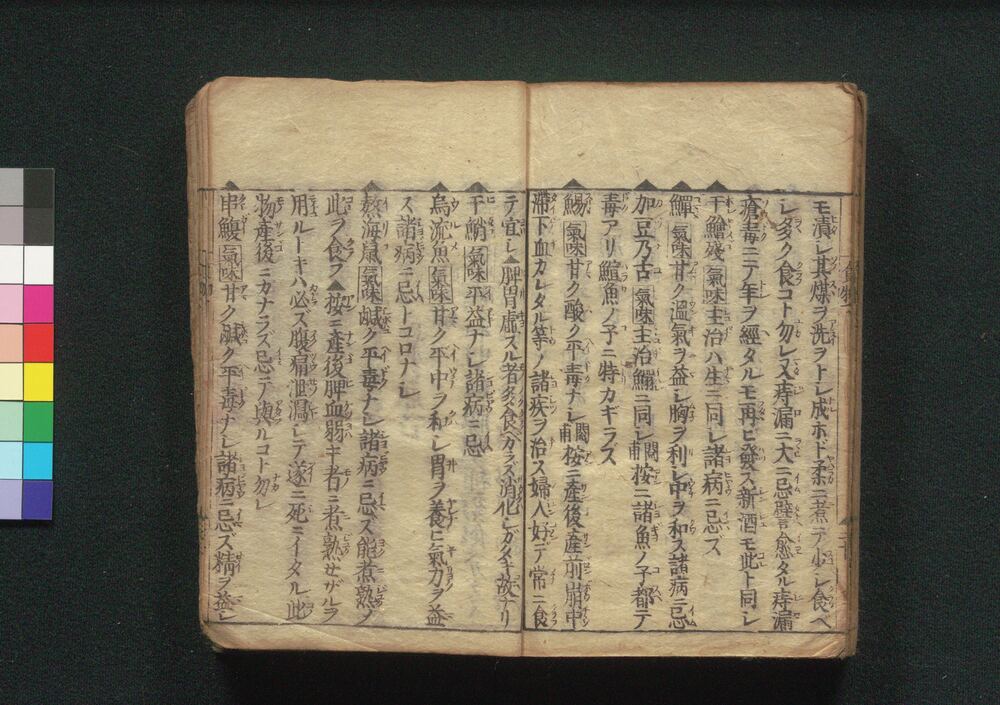 モ漬シ其煤ヲ洗ヲトシ成ホド柔ニ煮テ少シ食ベ
シ多ク食コト勿レ又痔漏ニ大ニ忌譬愈タル痔漏
瘡毒ニテ年ヲ經タルモ再ビ發ス新酒モ此ト同シ
干鱠殘 氣味主治ハ生ニ同シ諸病ニ忌ズ
鱓 氣味甘ク溫氣ヲ益シ胸ヲ利シ中ヲ和ス諸病ニ忌
加豆乃古 氣味主治鯔ニ同シ 閩甫 按ニ諸魚ノ子都テ
毒アリ鯡魚ノ子ニ特カギラズ
鯣 氣味甘ク酸ク平毒ナシ 閩甫 按ニ產後產前崩中
滯下血カレタル等ノ諸疾ヲ治ス婦人好デ常ニ食
テ宜シ▲脾胃虛スル者多食ベカラズ消化シガタキ故ナリ
干鮹 氣味平益ナシ諸病ニ忌
烏流魚 氣味甘ク平中ヲ和シ胃ヲ養ヒ氣力ヲ益
ス諸病ニ忌トコロナシ
熬海鼠 氣味鹹ク平毒ナシ諸病ニ忌ズ能煮熟ノ
此ヲ食フ▲按ニ產後脾血弱キ者ニ煮熟セザルヲ
用ルトキハ必ズ腹痛泄瀉シテ遂ニ死ニイタル此
物產後ニカナラズ忌テ與ルコト勿レ
串鰒 氣味甘ク鹹ク平毒ナシ諸病ニ忌ズ精ヲ益シ